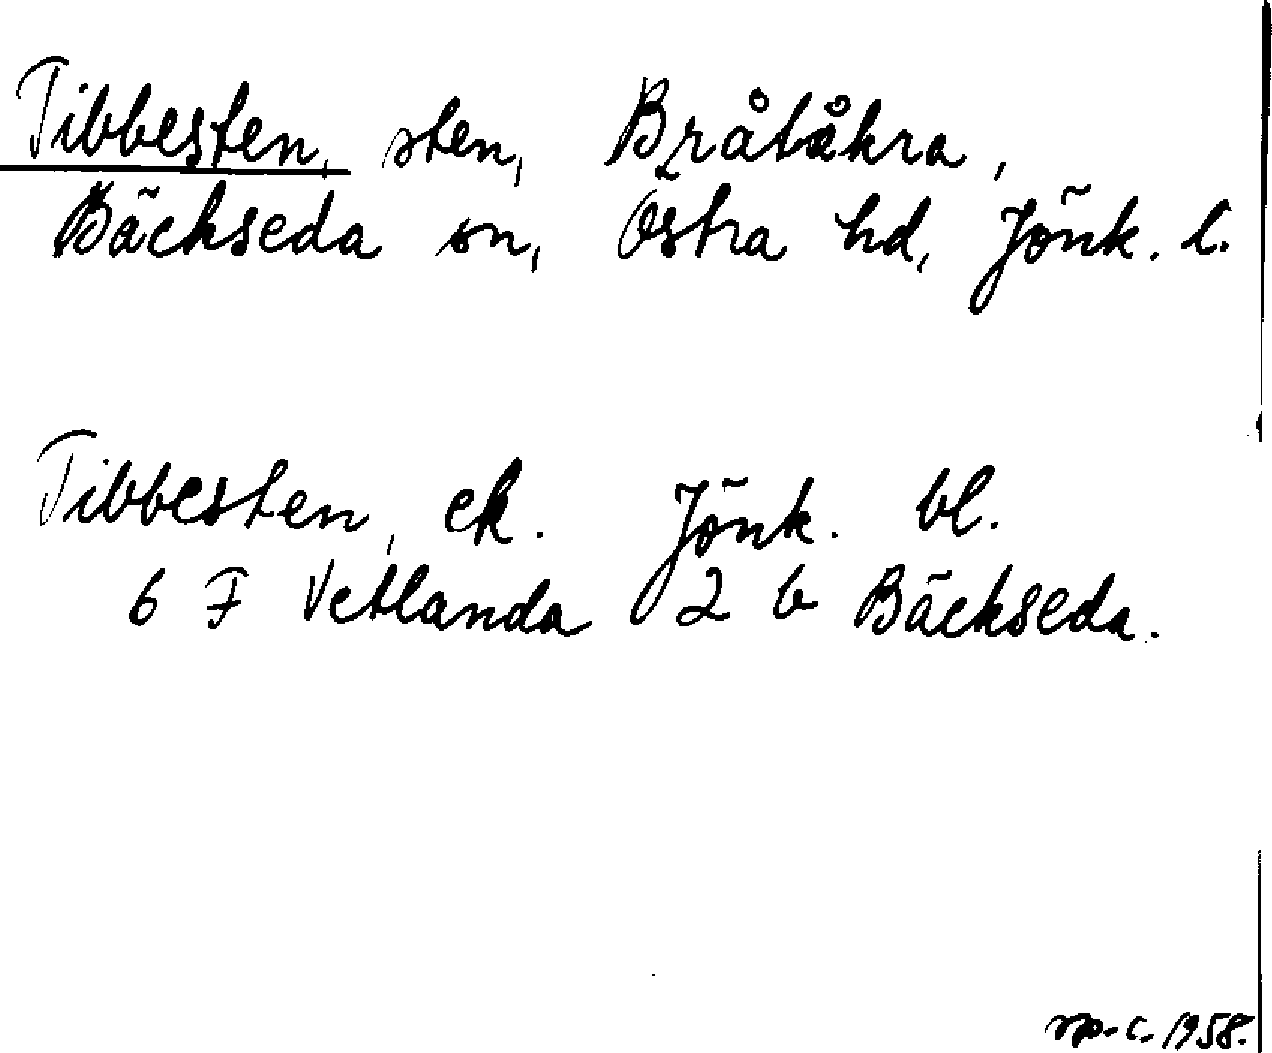 Tibbesten, sten, Bråtåkra,
Bäckseda sn, Östra hd, Jönk. l.
Tibbesten, ek. Jönk. bl.
6 F Vetlanda 2 b Bäckseda.
1958.